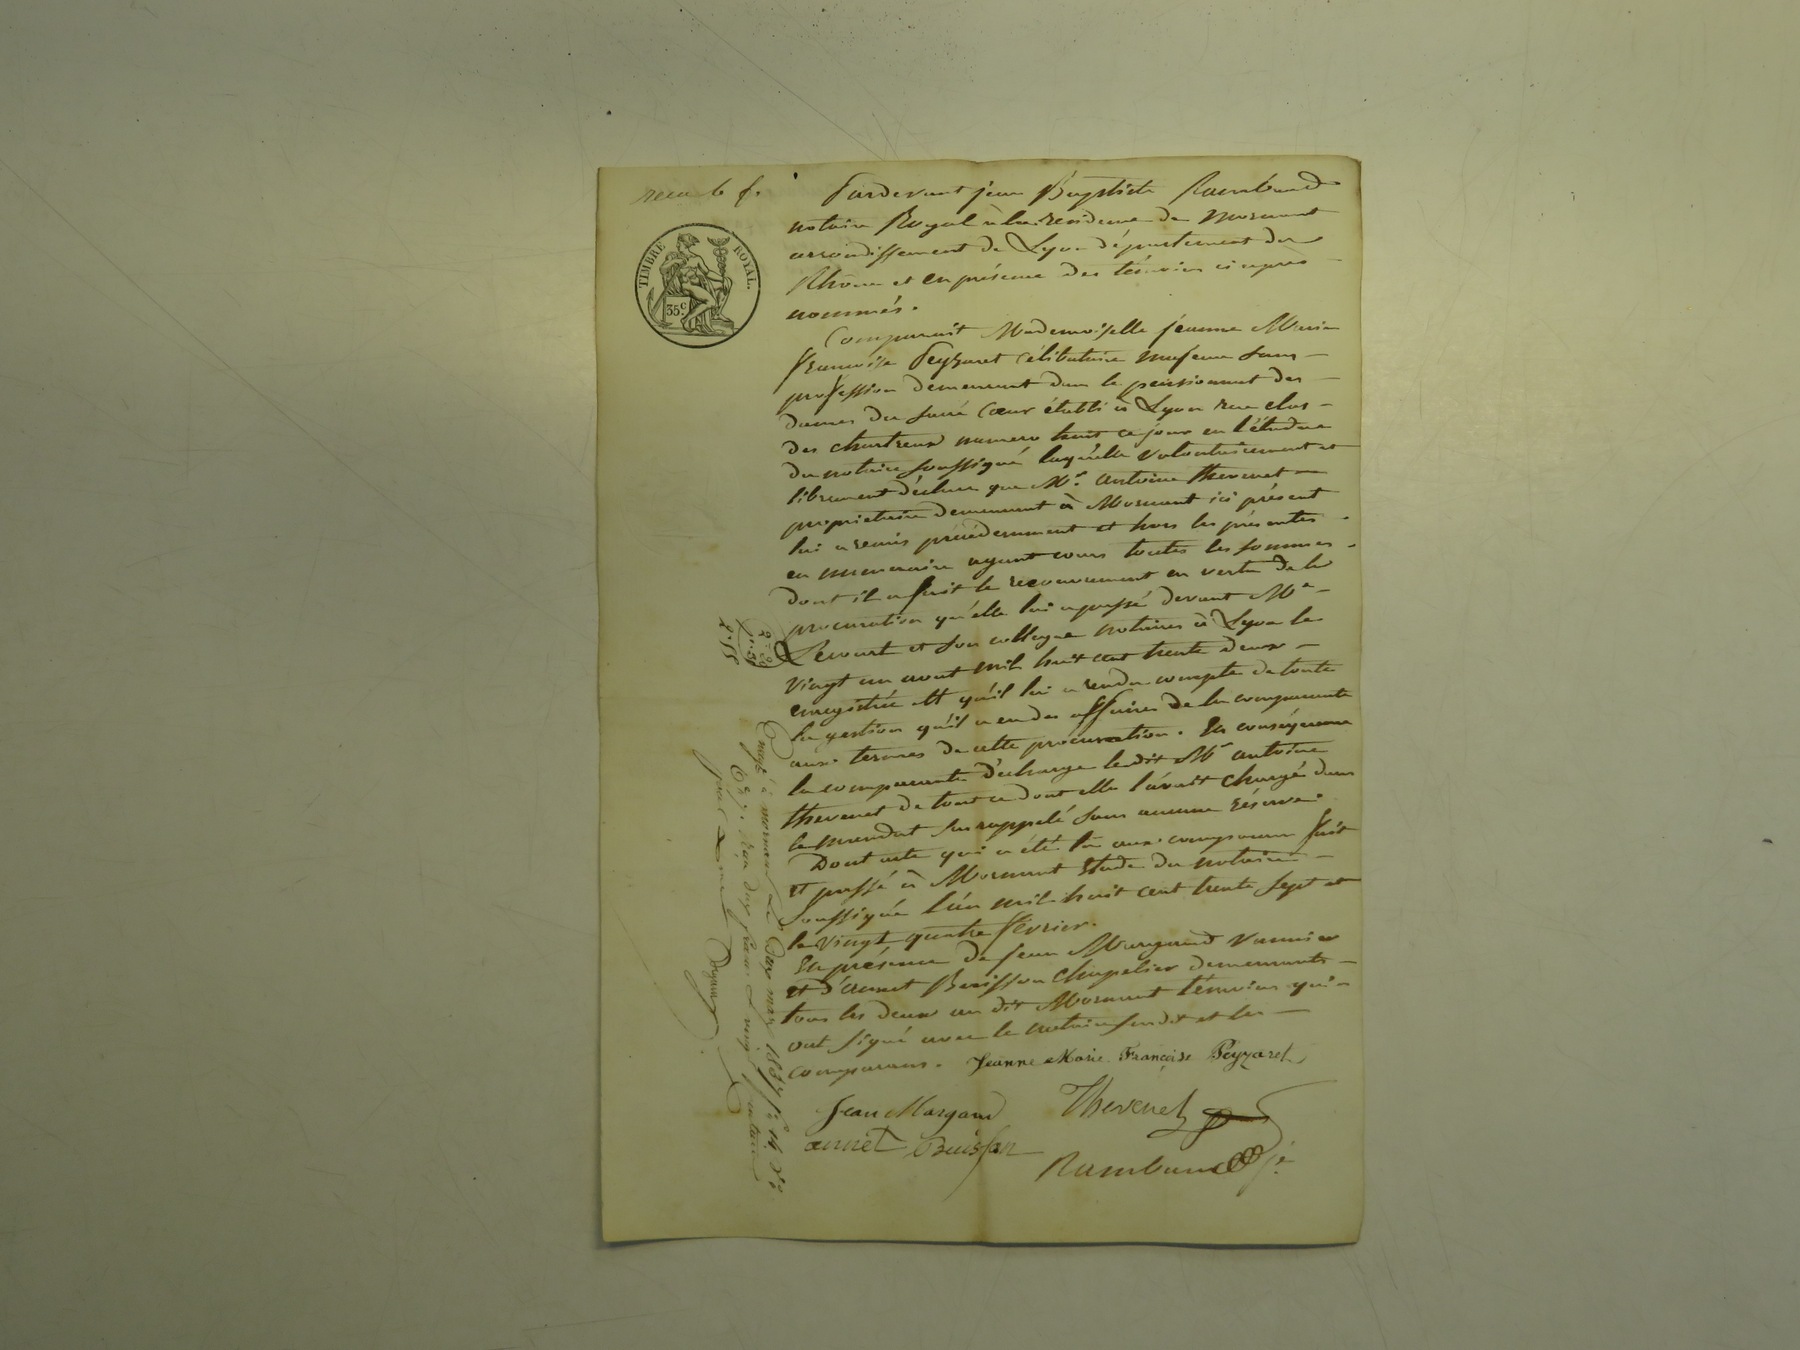 TIMBRE ROYAL.
35 C
Pardevant jean Baptiste Rambaud
notaire Royal à la residence de Mornant
arrondissement de Lyon département du
Rhône et en présence des témoins ci après
nommés.
Comparait Mademoiselle jeanne Marie
françoise Peyzaret célibataire majeure sans
profession demeurant dans le pensionnat des
dames du sacré Cœur établi à Lyon rue clos
des chartreux numero huit ce jour en l'étude
du notaire soussigné laquelle volontairement et
librement déclare que Mr. antoine thevenet
propriétaire demeurant à Mornant ici présent
lui a remis précédemment et hors les présentes
en numeraire ayant cours toutes les sommes
dont il a fait le recouvrement en vertu de la
procuration qu'elle lui a passé devant Me
Lecourt et son collegue notaires à Lyon le
vingt un aout mil huit cent trente deux
enregistrée et qu'il lui a rendu compte de toute
la gestion qu'il a eu des affaires de la comparante
aux termes de cette procuration. En conséquence
la comparante décharge ledit Mr antoine
thevenet de tout ce dont elle l'avait chargé dans
le mandat sus rappelé sans aucune réserve.
Dont acte qui a été lu aux comparans fait
et passé à Mornant Etude du notaire
soussigné l'an mil huit cent trente sept et
le vingt quatre février.
En présence de jean Margand vannier
et d'annet Buisson chapelier demeurants
tous les deux au dit Mornant témoins qui
ont signé avec le notaire susdit et les
comparans. Jeanne Marie Françoise Peyzaret
Jean Margand Thevenet
annet Buisson
Rambaud
Enregé à mornant Le deux mars 1837 fo 14
Reçu deux francs et vingt centimes